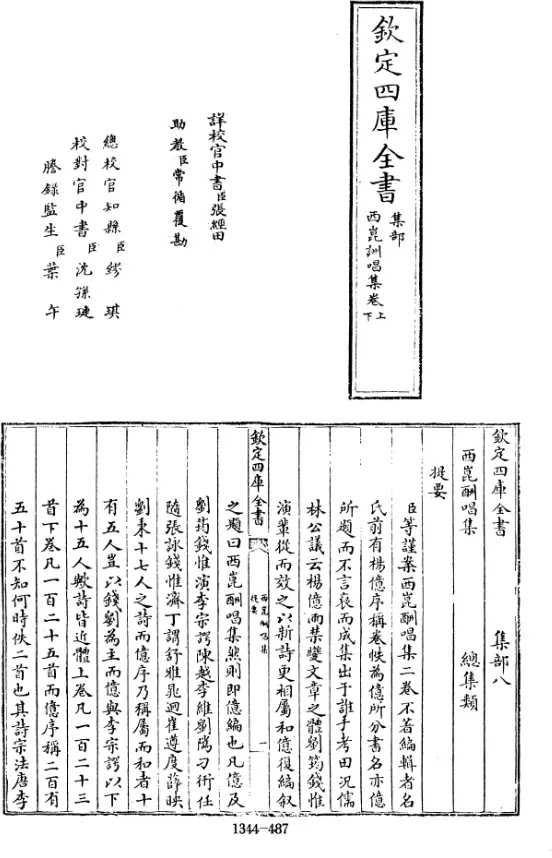 欽定四庫全書
集部
西崑詶唱集卷上
下
詳校官中書臣張經田
助教臣常循覆勘
總校官知縣臣繆琪
校對官中書臣沈孫璉
謄錄監生臣葉午
欽定四庫全書 集部八
西崑酬唱集 總集類
提要
臣等謹案西崑酬唱集二卷不著編輯者名
氏前有楊億序稱卷帙為億所分書名亦億
所題而不言裒而成集出于誰手考田況儒
林公議云楊億兩禁變文章之體劉筠錢惟
演輩從而效之以新詩更相屬和億復編叙
欽定四庫全書
西崑酬唱集
提要
一
之題曰西崑酬唱集然則即億編也凡億及
劉筠錢惟演李宗諤陳越李維劉隲刁衎任
隨張詠錢惟濟丁謂舒雅晁迥崔遵度薛映
劉秉十七人之詩而億序乃稱屬而和者十
有五人豈以錢劉為主而億與李宗諤以下
為十五人歟詩皆近體上卷凡一百二十三
首下卷凡一百二十五首而億序稱二百有
五十首不知何時佚二首也其詩宗法唐李
1344-487